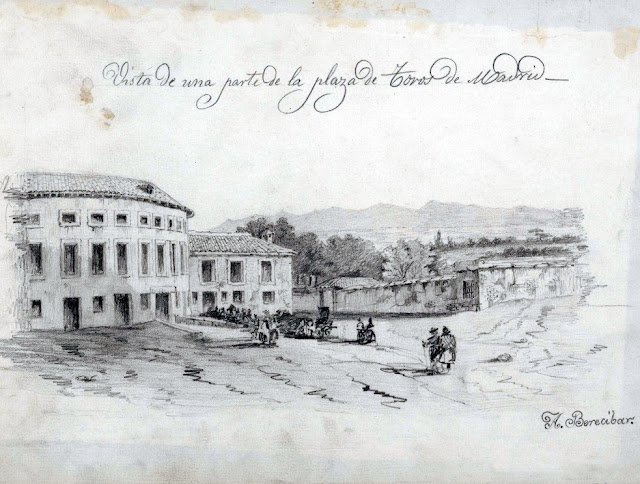 Vista de una parte de la plaza de Toros de Madrid—
A. Berecibar.